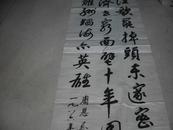 江歌罷掉頭东邃密
濟世窮面壁十年圖
難酬蹈海亦英雄
周恩
一九八